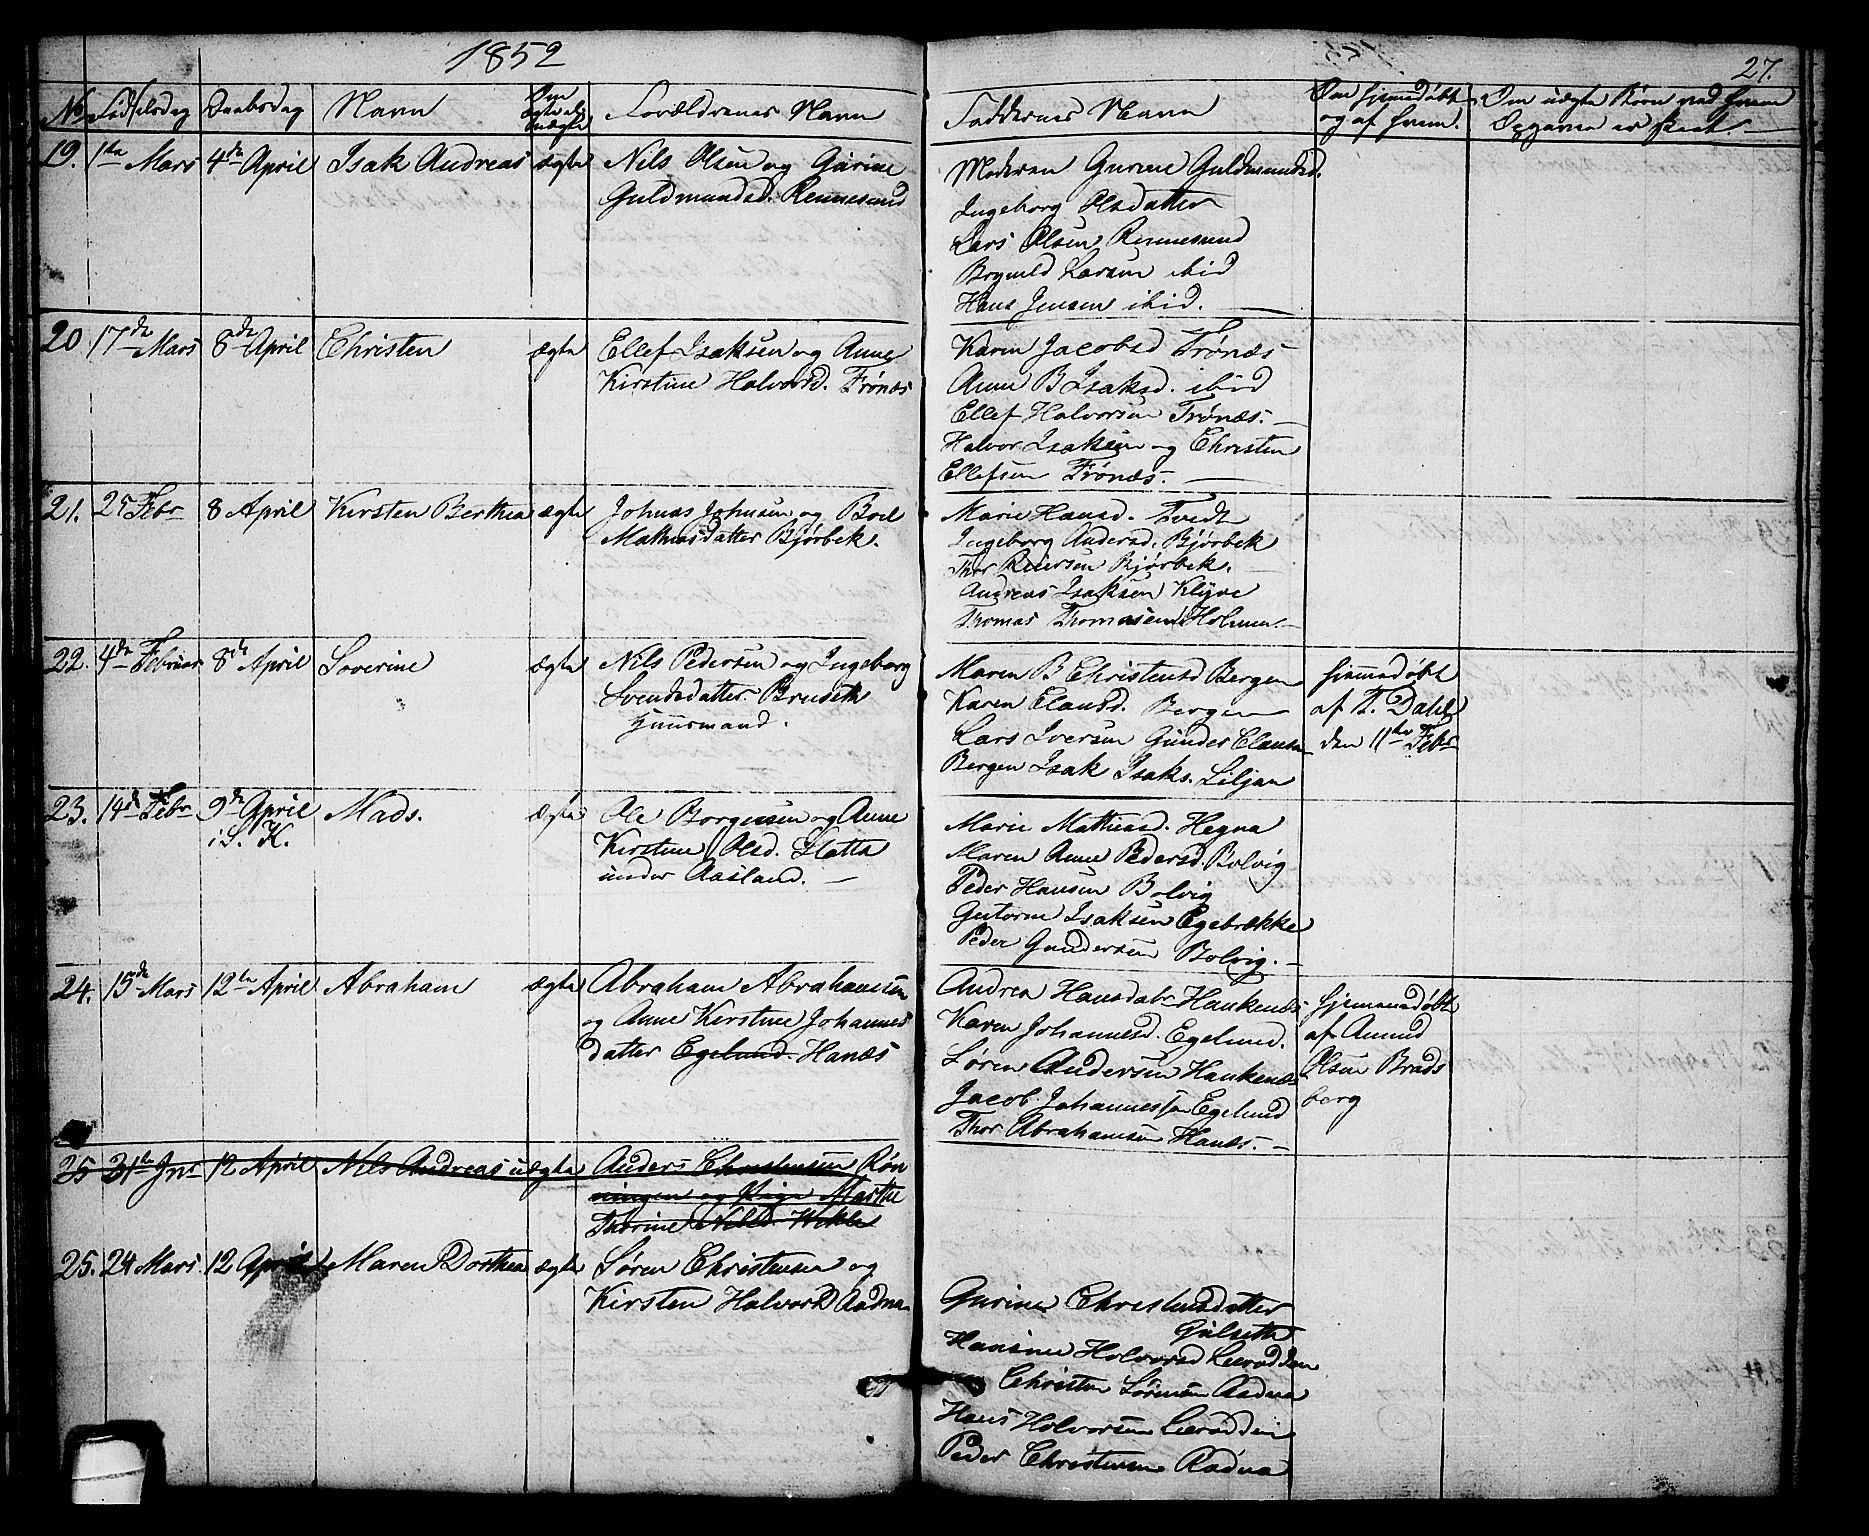 1852
27.
No Fødselsdag Daabsdag Navn Om ægte el. uægte Forældrenes Navn Faddernes Navn Om hjemmedøbt og af hvem. Om uægte Børn ved hvem Opgaven er skeet
19. 1ste Mars 4de April Isak Andreas ægte Nils Olsen og Gurine
Guldmundsd. Rennesund
Moderen Gurine Guldmundsd.
Ingeborg Olsdatter
Lars Olsen Rennesund
Brynild Larsen ibid
Hans Jensen ibid.
20 17de Mars 8de April Christen ægte Ellef Isaksen og Anne
Kirstine Halvorsd. Trönæs
Karen Jacobsd Trönæs
Anne B Isaksd. ibid
Ellef Halvorsen Trönæs.
Halvor Isaksen og Christen
Ellefsen Trönæs.
21. 25 Febr 8 April Kirsten Berthea ægte Johnas Johnsen og Boel
Mathiasdatter Bjørbek.
Marie Hansd. Tvedt
Ingeborg Andersd. Bjørbek
Thor Reiersen Bjørbek.
Andreas Isaksen Klyve
Thomas Thomasen Holmen.
22. 4de Februar 8de April Severine ægte Nils Pedersen og Ingeborg
Svendsdatter Bruseth
Huusmand.
Maren B Christensd Bergen
Karen Clausd. Bergen
Lars Iversen Gunder Clausen
Bergen Isak Isaks. Liljan
hjemmedøbt
af T. Dahl
den 11te Febr
23. 14de Febr 9de April Mads. ægte Ole Borgersen og Anne
i S. K.
Kirstine Olsd. Sletta
under Aasland.
Marie Mathiasd. Hegna
Maren Anne Pedersd. Bolvig
Peder Hansen Bolvig
Gutorm Isaksen Egebrække
Peder Gundersen Bolvig.
24. 15de Mars 12te April Abraham ægte Abraham Abrahamsen
og Anne Kirstine Johannes
datter Egelund. Hanæs
Andrea Hansdatr Haukenæs
Karen Johannesd. Egelund.
Søren Andersen Haukenæs
Jacob Johannessen Egelund
Thor Abrahamsen Hanæs.
hjemmedøbt
af Amund
Olsen Brads
berg
25 31te Jnr 12 April Nils Andreas uægte Anders Christensen Røn
ningen og Pige Marthe
Thorine Nilsd.
25. 24 Mars. 12 April Maren Dorthea ægte Søren Christensen og
Kirsten Halvorsd Aadna
Gurine Christensdatter
Gulseth
Hansine Halvorsd Lerødden
Christen Sørensen Aadna
Hans Halvorsen Lerødden
Peder Christensen Aadna